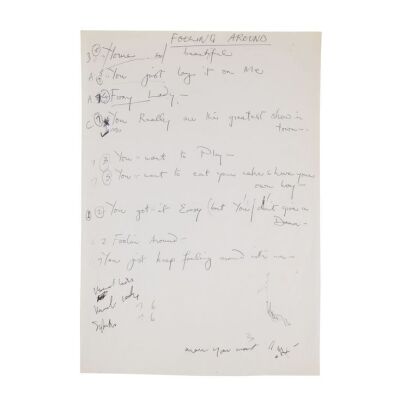 FOOLING AROUND
3 ④ - Horse so/ beautiful
A ③ - You just lay it on Me
A ② Foxy Lady -
C ① You Really are the greatest show in
town -
③ You - want to Play -
③ You - want to eat your cake & have your
own way -
② You got it Easy (but You/ don't give a
Damn -
2 Foolin Around -
You just keep fooling around with me -
6
6
you want